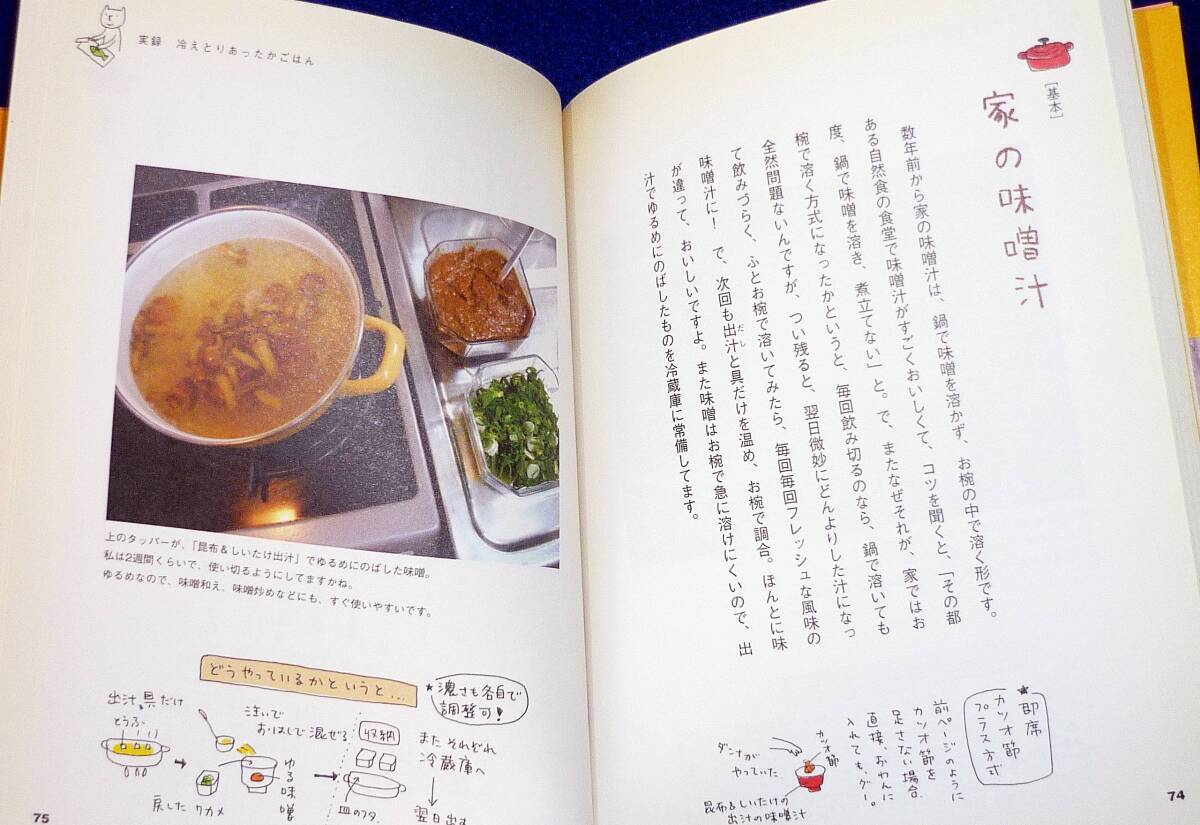 [基本]
家の味噌汁
数年前から家の味噌汁は、鍋で味噌を溶かず、お椀の中で溶く形です。
ある自然食の食堂で味噌汁がすごくおいしくて、コツを聞くと、「その都
度、鍋で味噌を溶き、煮立てない」と。で、またなぜそれが、家ではお
椀で溶く方式になったかというと、毎回飲み切るのなら、鍋で溶いても
全然問題ないんですが、つい残ると、翌日微妙にどんよりした汁になっ
て飲みづらく、ふとお椀で溶いてみたら、毎回毎回フレッシュな風味の
味噌汁に！　で、次回も出汁と具だけを温め、お椀で調合。ほんとに味
だし
が違って、おいしいですよ。また味噌はお椀で急に溶けにくいので、出
汁でゆるめにのばしたものを冷蔵庫に常備してます。
★即席
カツオ節
プラス方式
前ページのように
カツオ節を
足さない場合、
直接、おわんに
入れても、グー。
カツオ節
ダンナが
やっていた
昆布&しいたけの
出汁の味噌汁
74
実録　冷えとりあったかごはん
上のタッパーが、「昆布&しいたけ出汁」でゆるめにのばした味噌。
私は2週間くらいで、使い切るようにしてますかね。
ゆるめなので、味噌和え、味噌炒めなどにも、すぐ使いやすいです。
どうやっているかというと…
★濃さも各自で
調整可！
出汁、具だけ
とうふ
注いで
おはしで混ぜる
戻したワカメ
ゆる味噌
収納
皿のフタ
またそれぞれ
冷蔵庫へ
翌日出す
75